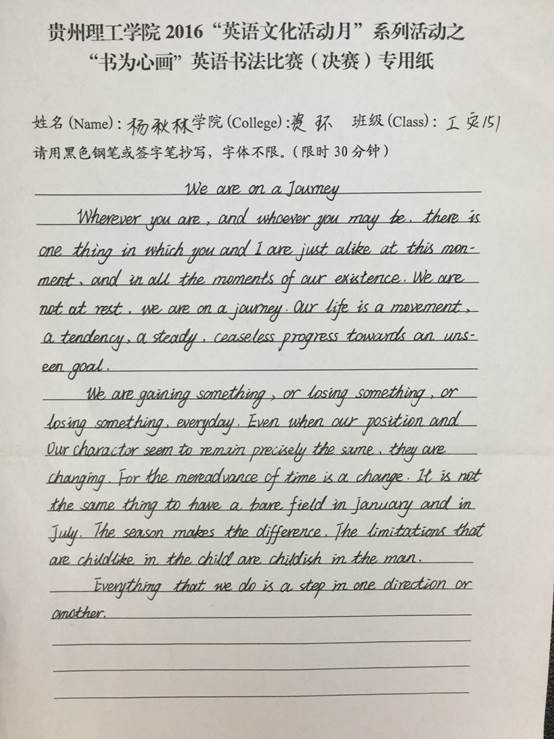 贵州理工学院 2016 “英语文化活动月”系列活动之
“书为心画”英语书法比赛（决赛）专用纸
姓名 (Name)：杨秋林 学院 (College)：资环 班级 (Class)：工安151
请用黑色钢笔或签字笔抄写，字体不限。（限时 30 分钟）
We are on a Journey
Wherever you are, and whoever you may be, there is
one thing in which you and I are just alike at this mon-
ment, and in all the moments of our existence. We are
not at rest, we are on a journey. Our life is a movement,
a tendency, a steady, ceaseless progress towards an uns-
een goal.
We are gaining something, or losing something, or
losing something, everyday. Even when our position and
Our charactor seem to remain precisely the same, they are
changing. For the mereadvance of time is a change. It is not
the same thing to have a bare field in January and in
July. The season makes the difference. The limitations that
are childlike in the child are childish in the man.
Everything that we do is a step in one direction or
another.